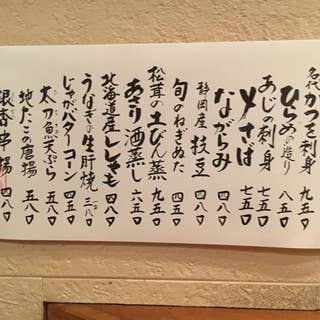 名代 かつを刺身 九五〇
ひらめの造り 八五〇
あじの刺身 七五〇
〆さば 七五〇
ながらみ 四八〇
静岡産 枝豆 四八〇
旬のねぎぬた 四五〇
松茸の土びん蒸 九五〇
あさり酒蒸し 六五〇
北海道産ししゃも 四八〇
うなぎの生肝焼 三八〇
じゃがバターコーン 四五〇
太刀魚天ぷら 五八〇
地たこの唐揚 五八〇
銀杏串揚 四八〇